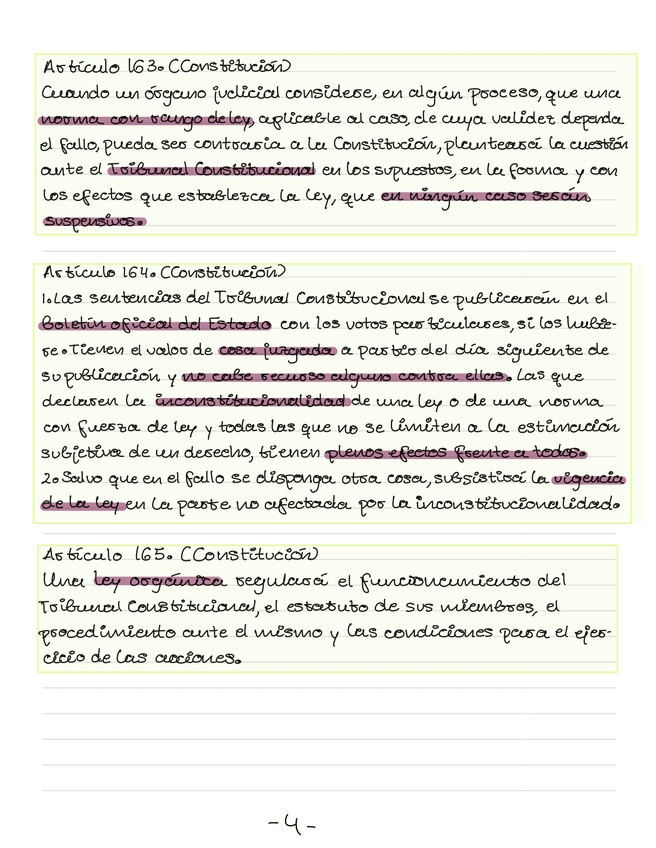 Artículo 163. (Constitución)
Cuando un órgano judicial considere, en algún proceso, que una
norma con rango de ley, aplicable al caso, de cuya validez dependa
el fallo, pueda ser contraria a la Constitución, planteará la cuestión
ante el Tribunal Constitucional en los supuestos, en la forma y con
los efectos que establezca la ley, que en ningún caso serán
suspensivos.
Artículo 164. (Constitución)
1. Las sentencias del Tribunal Constitucional se publicarán en el
Boletín oficial del Estado con los votos particulares, si los hubie-
re. Tienen el valor de cosa juzgada a partir del día siguiente de
su publicación y no cabe recurso alguno contra ellas. Las que
declaren la inconstitucionalidad de una ley o de una norma
con fuerza de ley y todas las que no se limiten a la estimación
subjetiva de un derecho, tienen plenos efectos frente a todos.
2. Salvo que en el fallo se disponga otra cosa, subsistirá la vigencia
de la ley en la parte no afectada por la inconstitucionalidad.
Artículo 165. (Constitución)
Una ley orgánica regulará el funcionamiento del
Tribunal Constitucional, el estatuto de sus miembros, el
procedimiento ante el mismo y las condiciones para el ejer-
cicio de las acciones.
-4-